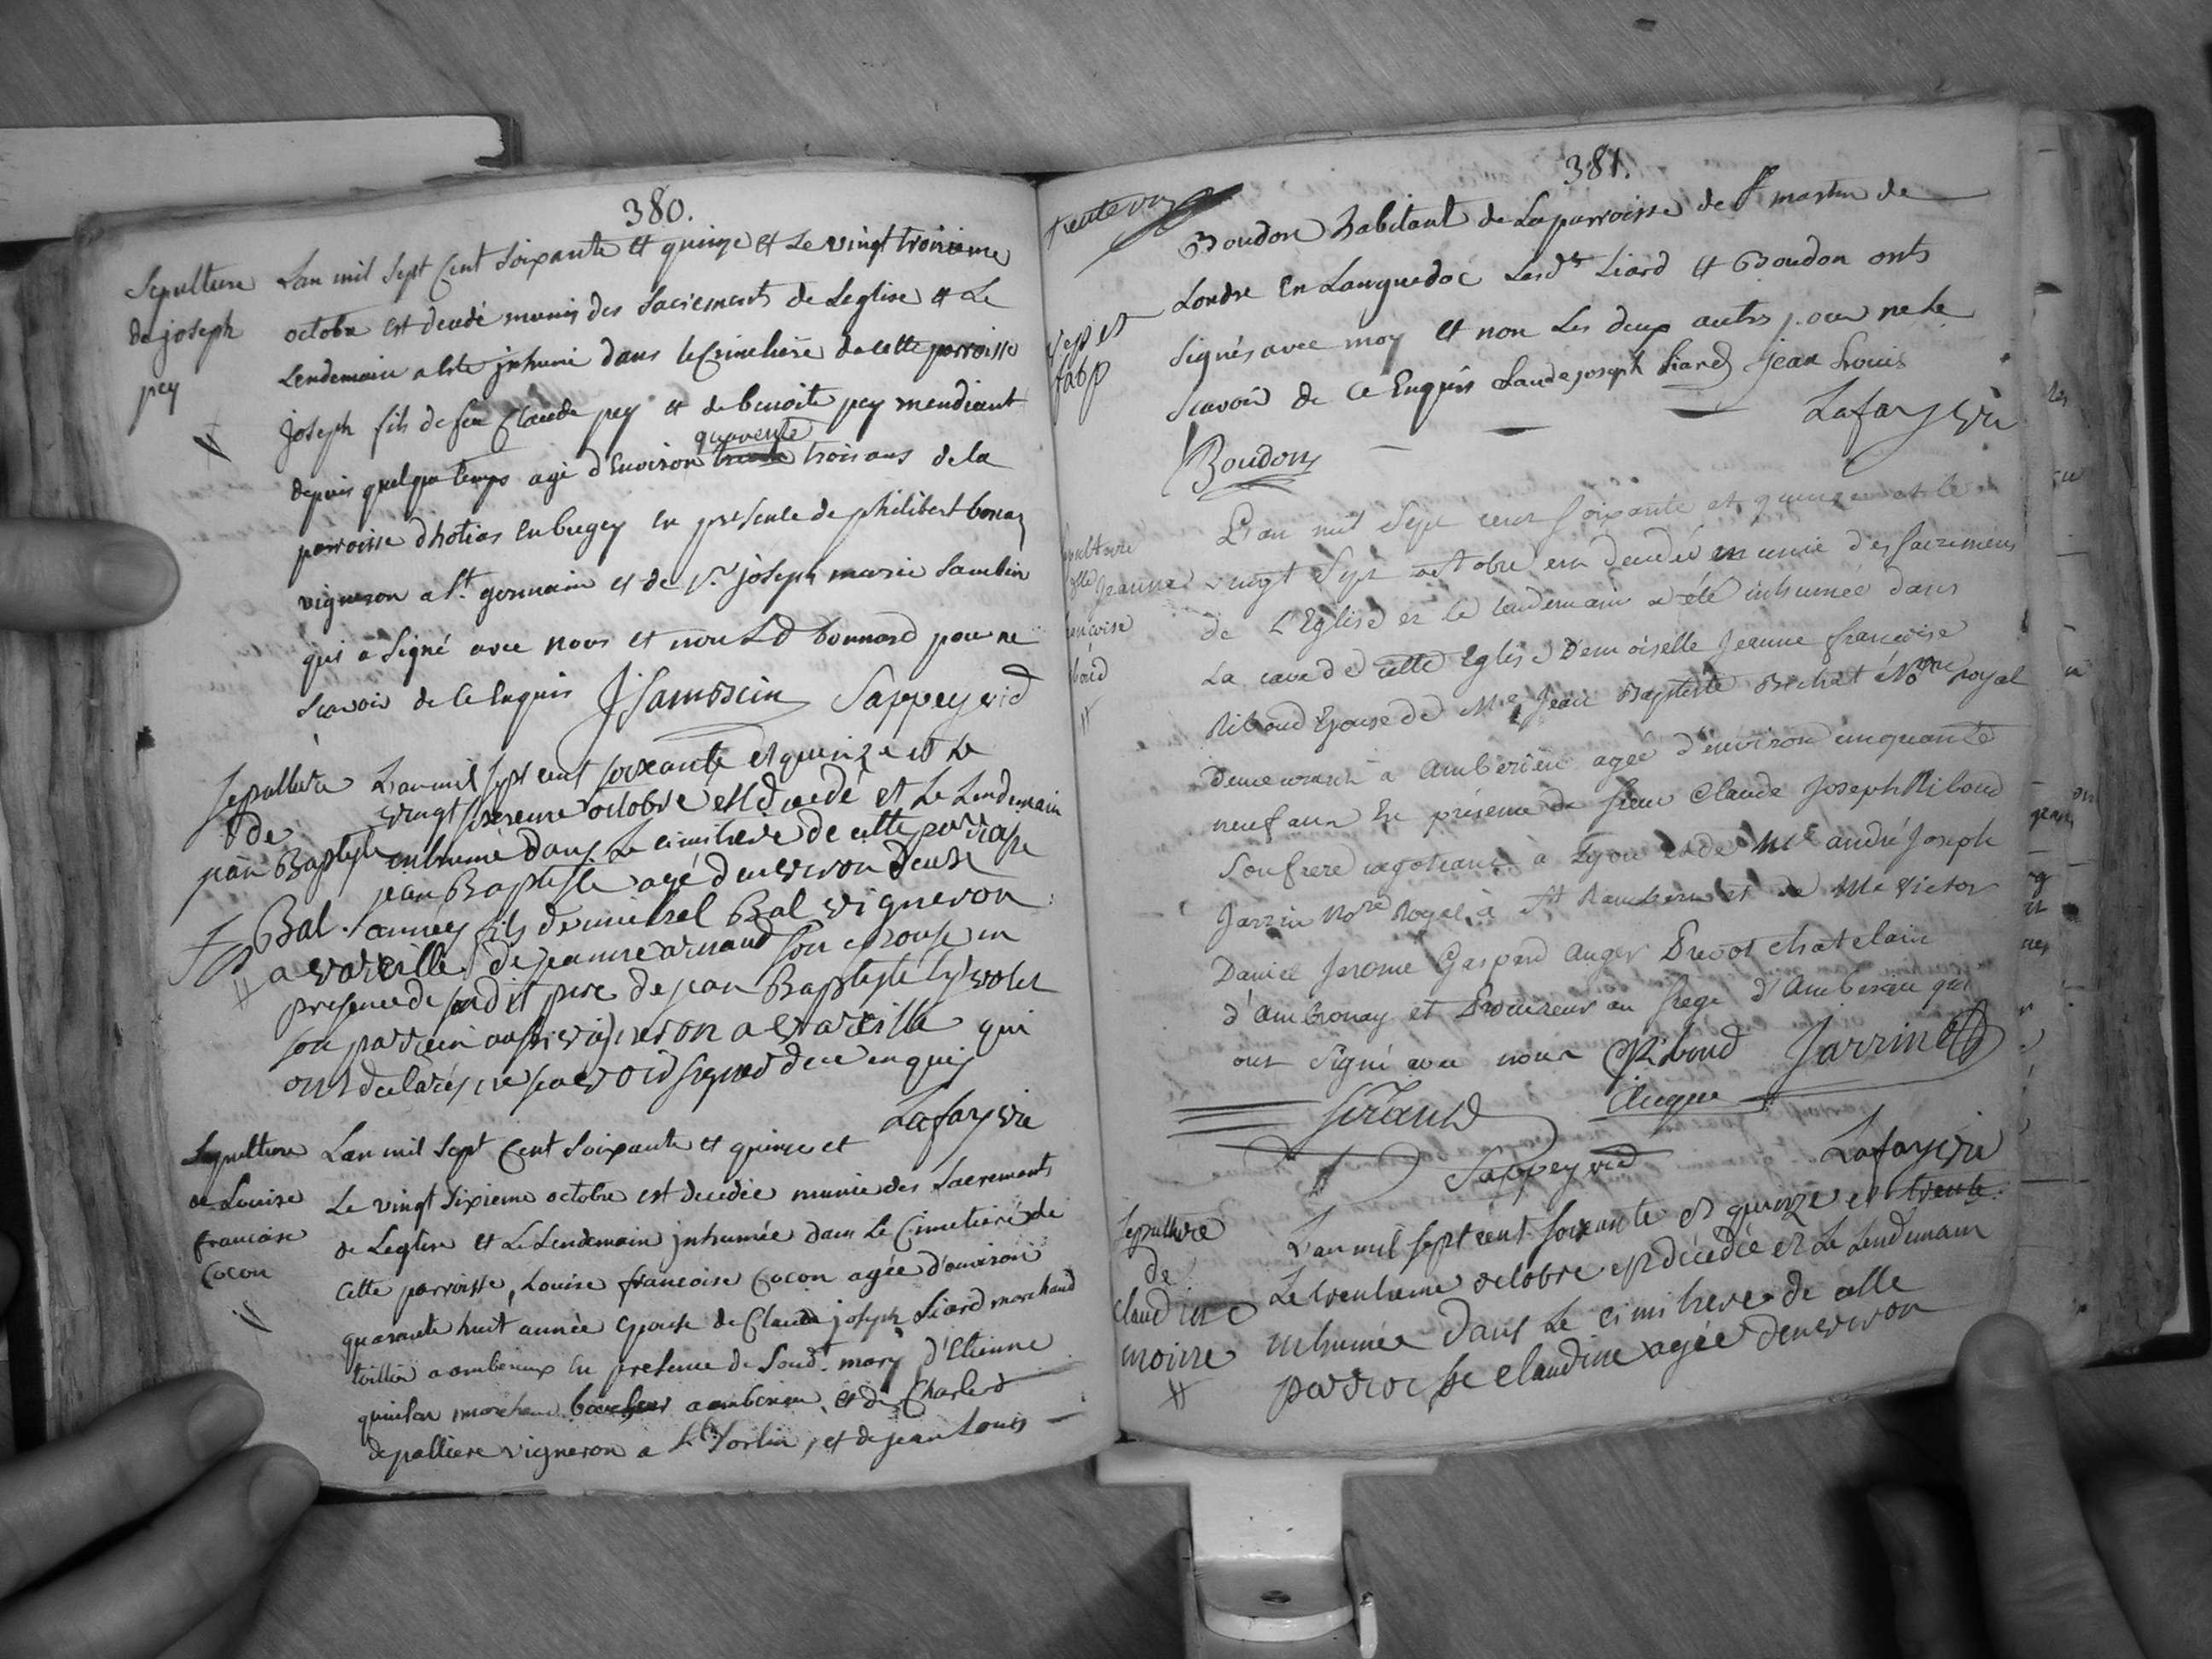 380.
Sepulture
de joseph
pey
Lan mil Sept Cent Soixante et quinze et Le vingt troisieme
octobre est decedé munis des Sacrements de Leglise et Le
Lendemain a été inhumé dans le Cimetiere de cette parroisse
joseph fils de feu Claude pey et de benoite pey mendiant
depuis quelque temps agé d'Environ quarente trois ans de la
parroisse dhotias En bugey en presence de philibert bonar
vigneron a St. germain et de Sr. joseph marie Sambin
qui a Signé avec nous et non Ld bonnard pour ne
Scavoir de Ce Enquis JSambin Sappey vic
Sepulture
de
jean Baptiste
Bal
L'an mil sept cent soixante et quinze et Le
vingt sixieme octobre est decedé et Le Lendemain
inhumé dans Le cimithere de cette parroisse
jean Baptiste agé d'environ deux
années fils de michel Bal vigneron
a vareille de jeanne arnaud son epouse en
presence de sondit pere de jean Baptiste
son parrain aussi vigneron a vareille qui
ont declarés ne scavoir signer de ce enquis
Lafay vic
Sepulture
de Louise
francoise
Cocon
Lan mil Sept Cent Soixante et quinze et
Le vingt Sixieme octobre est decedée munie des Sacrements
de Leglise et Le Lendemain inhumée dans Le Cimetiere de
Cette parroisse, Louise francoise Cocon agée d'environ
quarante huit année Epouse de Claude joseph Liard marchand
a amberieux En presence de Soud. mary d'Etienne
marchand a amberieu, et de Charles
depalliere vigneron a St. Sorlin, et de jean Louis
381.
Boudon habitant de La parroisse de St martin de
Londre En Languedoc Lesds Liard et Boudon onts
Signés avec moy et non Les deux autres pour ne Le
Scavoir de Ce Enquis Claude joseph Liard jean Louis
Boudon Lafay vic
L'an mil Sept cent soixante et quinze et le
vingt Sept octobre est decedée munie des sacremens
de L'Eglise et le lendemain a été inhumée dans
La cave de cette Eglise Demoiselle Jeanne francoise
Riboud Epouse de Me Jean Baptiste Bichat Nore royal
Demeurant a Amberieu agée d'environ cinquante
neuf ans En présence de sieur Claude Joseph Riboud
Son frere negotiant à Lyon et de Me andré Joseph
Jarrin Nore Royal à St Rambert et de Me Victor
Daniel Jerome Gaspard Auger Prevot chatelain
d'Ambronay et Procureur au siege d'Amberieu qui
ont Signé avec nous Riboud Jarrin
Auger
Sappey vic Lafay vic
Sepulture
de
Claudine
moine
L'an mil sept cent soixante et quinze et
Le trentieme octobre est décedée et Le Lendemain
inhumée dans Le cimithere de cette
parroisse claudine agée d'environ